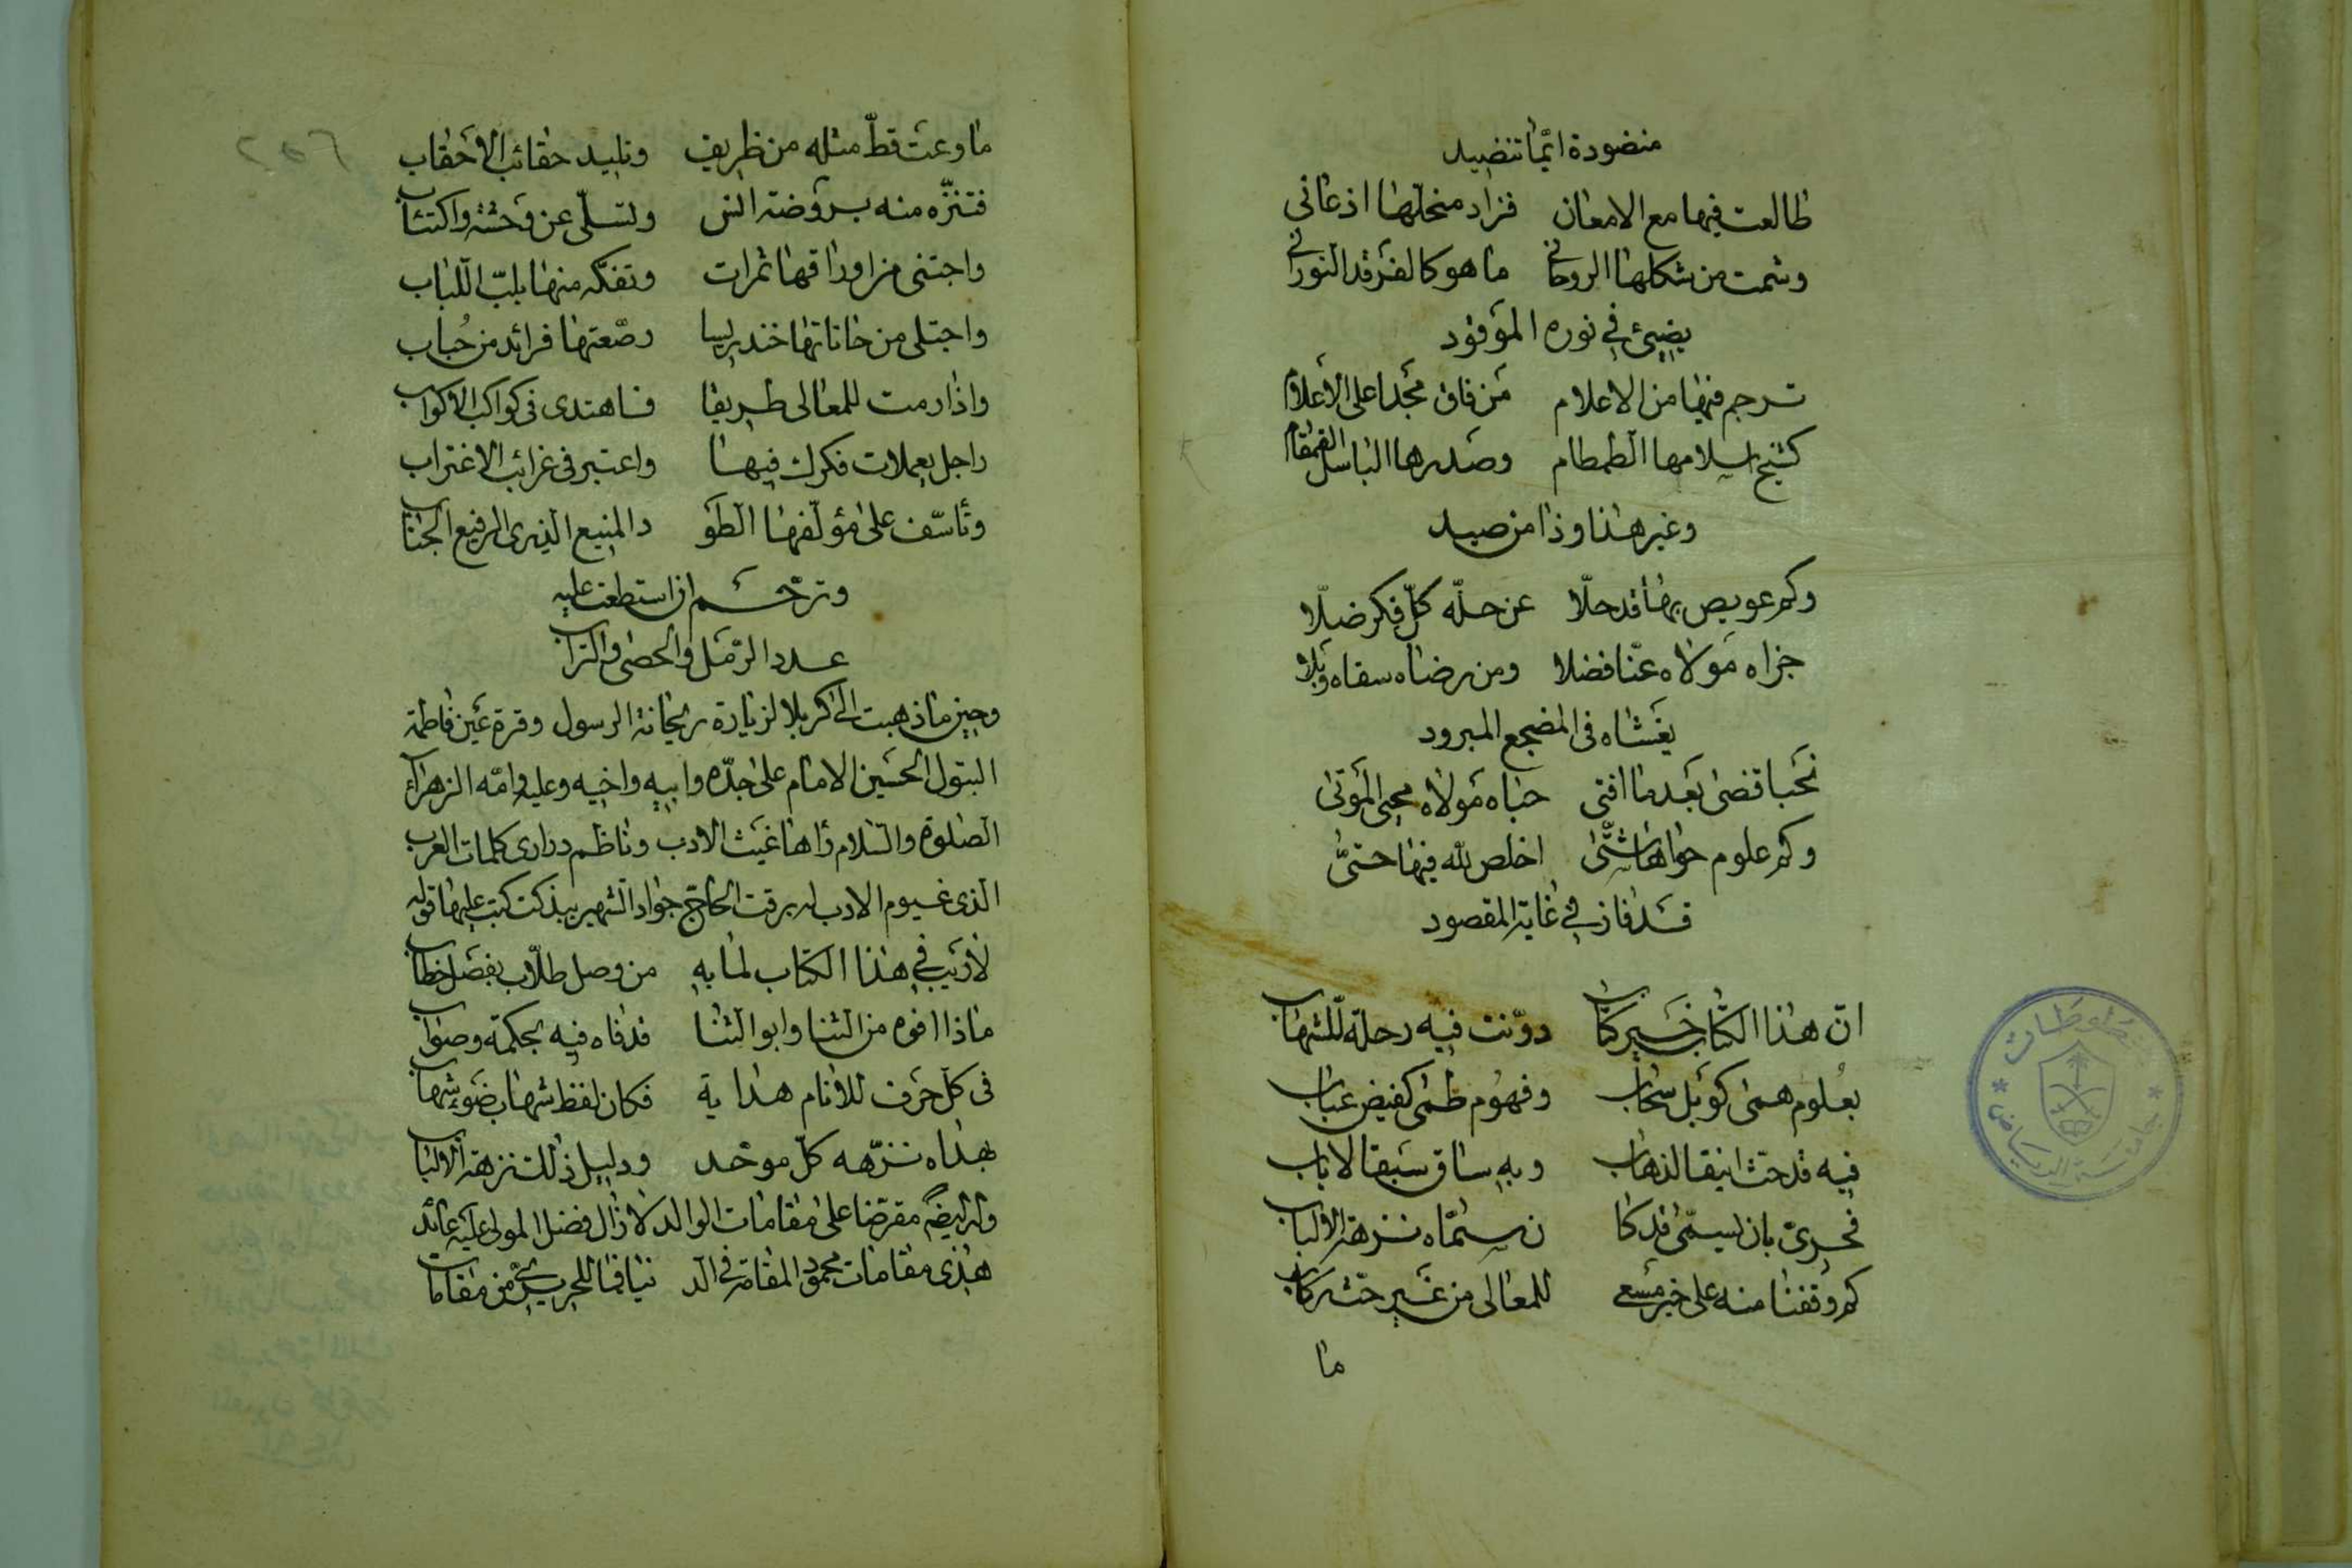 منضودة ايّما تنضيد
طالعت فيها مع الامعان فزاد منحلّها اذعاني
وشمت من شكلها الروحاني ما هو كالفرقد النوراني
يضيئ في نوره الموقود
ترجم فيها من الاعلام من فاق مجدا على الاعلام
كشيخ اسلامها الطمطام وصدرها الباسل القمقام
وغير هذا وذا من صيد
وكم عويص بها قد حلّا عن حلّه كلّ فكر ضلّا
جزاه مولاه عنّا فضلا ومن رضاه سقاه وبلا
يغشاه في المضجع المبرود
نحبا قضى بعد ما افتى حباه مولاه محيي الموتى
وكم علوم حواها شتّى اخلص لله فيها حتّى
قد فاز في غاية المقصود
انّ هذا الكتاب خير كتاب دوّنت فيه رحلة للشهاب
بعلوم همى كوبل سحاب وفهوم طمى كفيض عباب
فيه قد حث اينقا لذهاب وبه ساق سبقا لاياب
فحريّ بان يسمّى فد كا ن سمّاه نزهة الالباب
كم وقفنا منه على خير مسعى للمعالى من غير حث ركاب
ما
ما وعت قطّ مثله من ظريف وتليد حقائب الاحقاب
فتنزّه منه بروضة انس وتسلّى عن وحشة واكتئاب
واجتنى من اوراقها ثمرات وتفكّه منها بلبّ اللباب
واجتلى من حاناتها خندريسا رصّعتها فرائد من حُباب
واذا رمت للمعالى طريقا فاهتدى في كواكب الاكواب
راجل يعملات فكرك فيها واعتبر في غرائب الاغتراب
وتأسّف على مؤلّفها الطو د المنيع الذرى الرفيع الجناب
وترحّم ان استطعت عليه
عدد الرّمل والحصى والتراب
وحين ما ذهبت الى كربلا لزيارة ريحانة الرسول وقرة عين فاطمة
البتول الحسين الامام على جدّه وابيه واخيه وعليه وامّه الزهراء
الصلوة والسّلام رأها غيث الادب وناظم دراري كلمات العرب
الذى غيوم الادب له برقت الحاج جواد الشهير ببذكت كتب عليها قوله
لا ريب في هذا الكتاب لما به من وصل طلّاب بفصل خطاب
ماذا افوه من الثنا وابو الثنا قد فاه فيه بحكمة وصواب
في كلّ حرف للانام هداية فكان لفظ شهاب ضوء شهاب
بهداه نزّهه كلّ موحّد ودليل ذلك نزهة الالباب
وله ايضا مقرّضا على مقامات الوالد لا زال فضل المولى عليه عائد
هذى مقامات محمود المقامة في الد نيا فما للحريري من مقامات